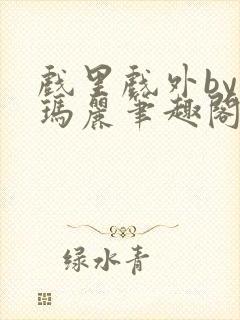 戲里戲外by
瑪麗筆趣閣
绿水青